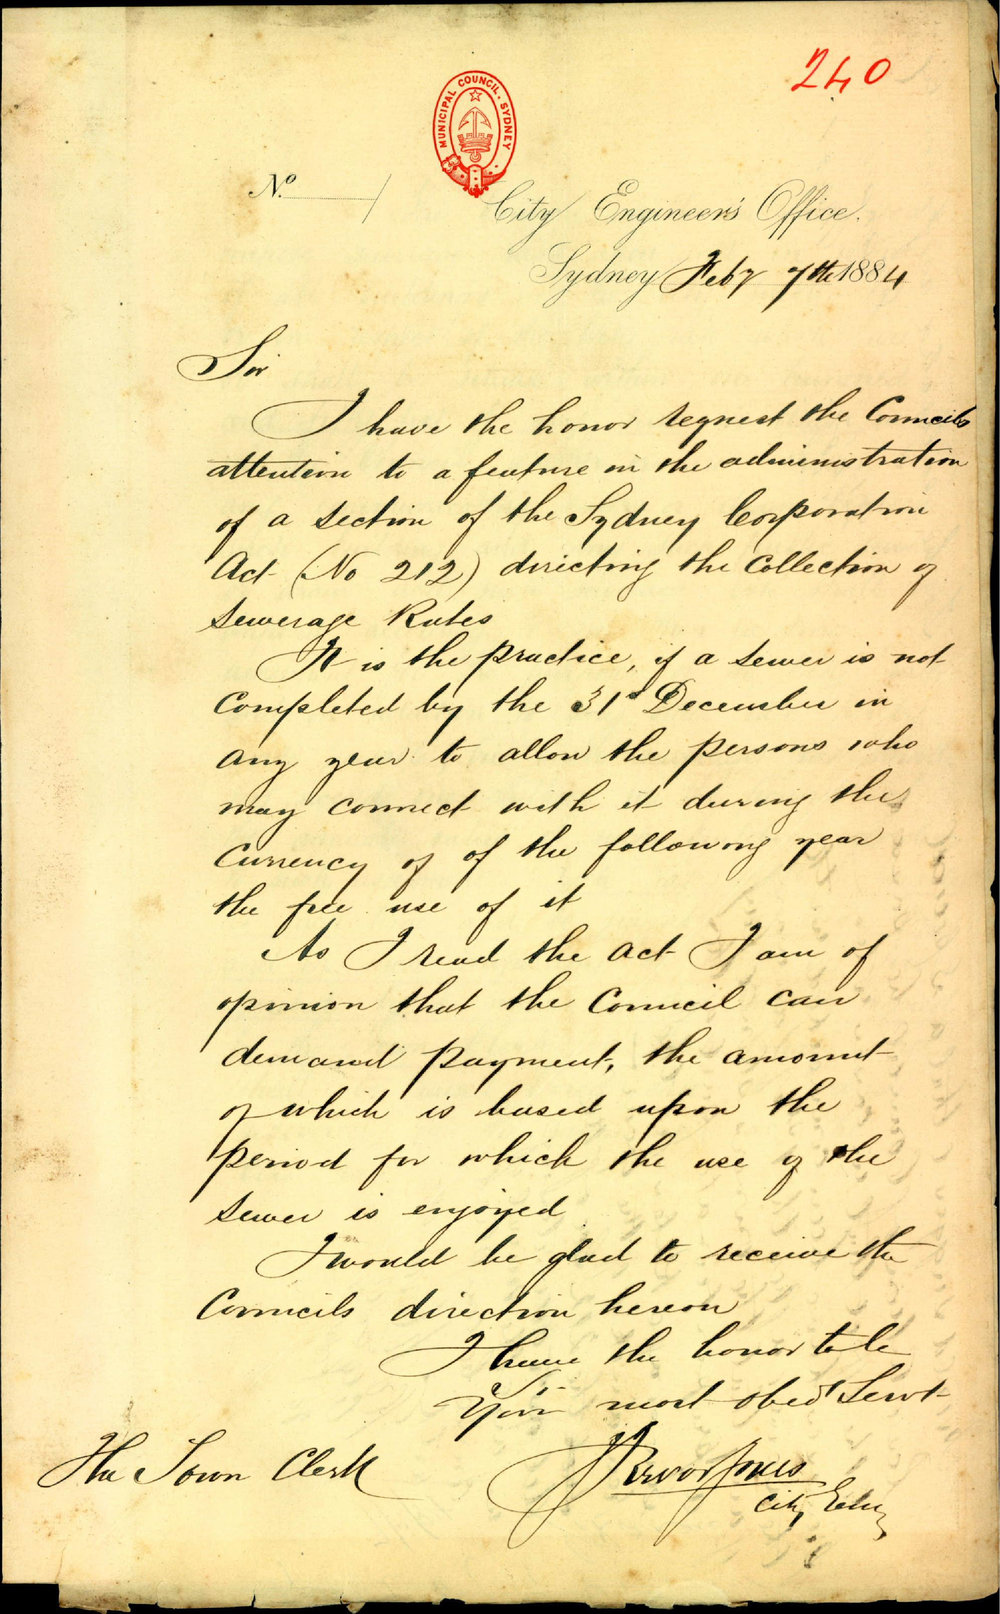 240
MUNICIPAL COUNCIL. SYDNEY
No. /
City Engineer's Office.
Sydney Feby 7th 1884
Sir
I have the honor request the Councils
attention to a feature in the administration
of a section of the Sydney Corporation
Act (No 212) directing the Collection of
Sewerage Rates
It is the practice, if a sewer is not
completed by the 31st December in
any year to allow the persons who
may connect with it during the
Currency of of the following year
the free use of it
As I read the act I am of
opinion that the Council can
demand payment, the amount
of which is based upon the
period for which the use of the
sewer is enjoyed
I would be glad to receive the
Councils direction hereon
I have the honor to be
Your most obed Servt
The Town Clerk
Trevor Jones
City Engr